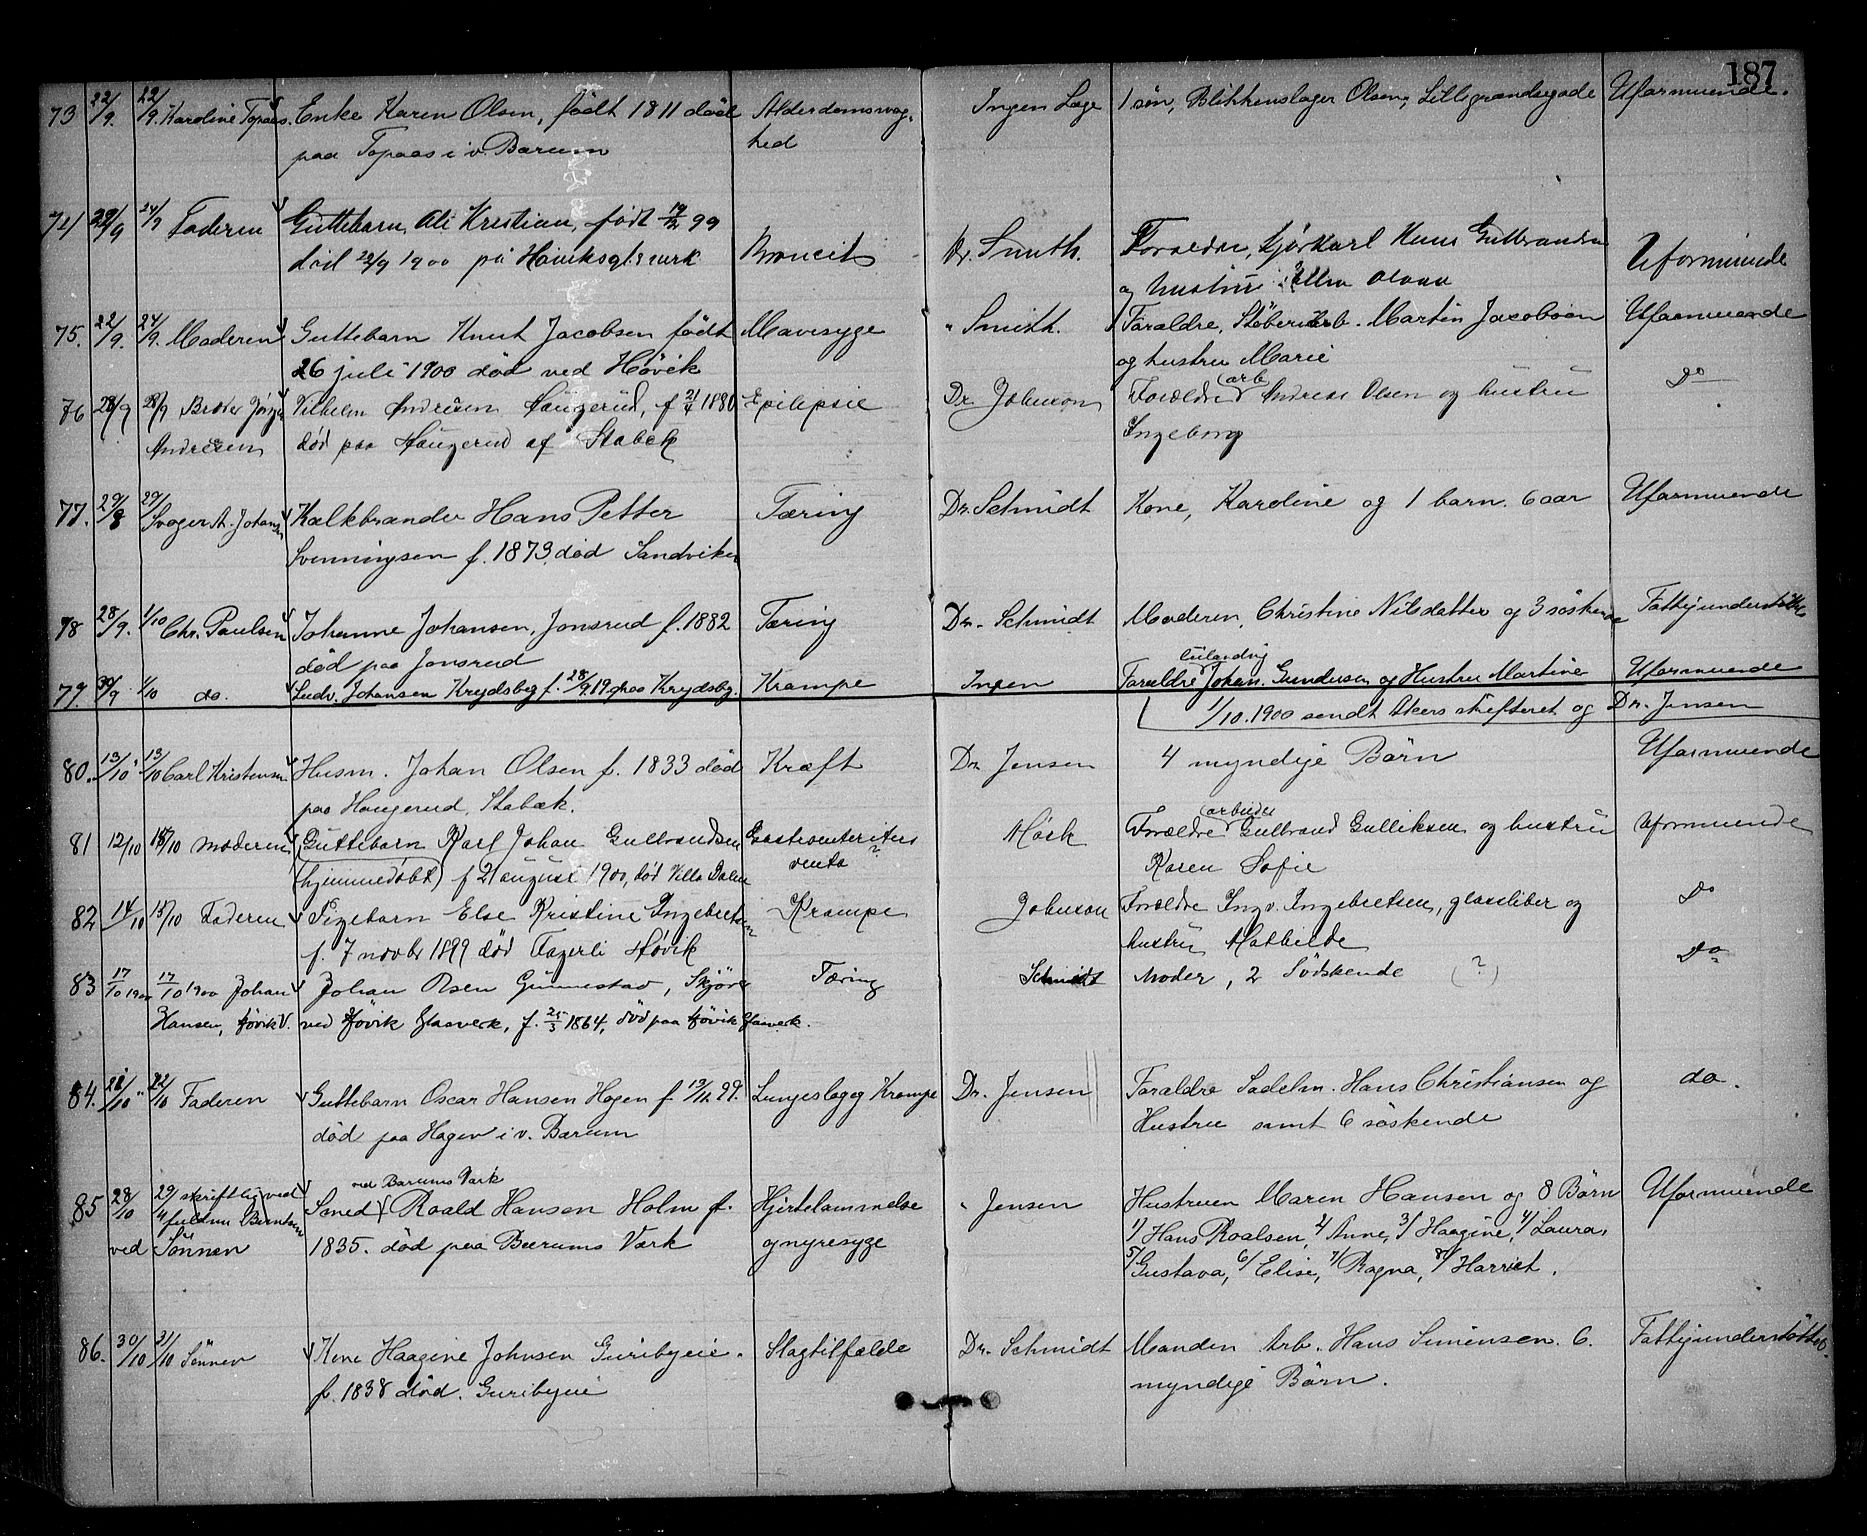 187
73 22/9. 22/9. Karoline Topaas. Enke Karen Olsen, født 1811 død Alderdomsvag- Ingen Læge 1 søn, Blikkenslager Olsen, Lillegrændsegade Uformuende.
paa Topaas i v. Bærum hed
74 22/9 24/9 Faderen Guttebarn, Ole Kristian, født 19/12 99
død 22/9 1900 på Høviksglsverk Broncit Dr. Smith. Forældre, Kjørkarl Hans Gulbrandsen Uformuende
og hustru Olava
75. 22/9. 24/9. Moderen Guttebarn Knut Jacobsen født Mavesyge " Smith. Forældre, Støberiarb. Martin Jacobsen Uformuende
26 juli 1900 død ved Høvik og hustru Marie
76 28/9 28/9 Broder Jørgen Vilhelm Andresen Haugerud, f 21/4 1880 Epilepsie Dr Johnson Forældre (arb Andreas Olsen og hustru Do
Andresen død paa Haugerud af Stabæk Ingeborg
77. 29/9 29/ Svoger A. Johansen Kalkbrander Hans Petter Tæring Dr. Schmidt Kone, Karoline og 1 barn. 6 aar Uformuende
Svenningsen f. 1873. død Sandviken
78 28/9. 1/10 Chr. Paulsen Johanne Johansen, Jonsrud f. 1882 Tæring Dr. Schmidt Moderen, Christine Nilsdatter og 3 søskende Fattigunderstøttet
død paa Jonsrud
79. 30/9 1/10 do. Ludv. Johansen Krydsbg f. 28/9 19. paa Krydsbg. Krampe Ingen Forældre Johan. Gundersen og Hustru Martine Uformuende
1/10. 1900 sendt Akers skifteret og Dr. Jensen
80. 13/10 " 13/10 Carl Kristensen Husm. Johan Olsen f. 1833 død Kræft Dr. Jensen 4 myndige Børn Uformuende
paa Haugerud, Stabæk.
81 12/10 15/10 Moderen Guttebarn Karl Johan Gulbrandsen Gastroenterit Høsk Forældre (arbeider Gulbrand Gulliksen og hustru Uformuende
(hjemmedøbt) f 21 august 1900, død Villa Dalen Karen Sofie
82 14/10 15/10 Faderen Pigebarn Else Kristine Ingebretsen Krampe Johnson Forældre Ingv. Ingebretsen, glassliber og Do
f. 7 novbr 1899 død Fagerli Høvik hustru Mathilde
83 17/10 1900 17/10 1900 Johan Johan Olsen Gunnestad, Skjøre Tæring Schmidt Moder, 2 Sødskende (?) Do
Hansen, Høvik V. ved Høvik Glasverk, f. 25/3 1864, død paa Høvik Glasverk.
84. 21/10 " 22/10 Faderen Guttebarn Oscar Hansen Hagen f. 13/12 99. Lungeslag og Krampe Dr. Jensen Forældre Sadelm. Hans Christiansen og do.
død paa Hagen i v. Bærum Hustru samt 6 søskende
ved Bærums Værk
85 28/10 29/ skriftlig ved Smed Roald Hansen Holm f. Hjertelammelse " Jensen Hustruen Maren Hansen og 8 Børn Uformuende
fuldm Berntsen 1835. død paa Bærums Værk og nyresyge 1/ Hans Roalsen, 2/ Anne, 3/ Haagine, 4/ Laura,
ved Sønnen 5/ Gustava, 6/ Elise, 7/ Ragna, 8/ Harriet.
86. 30/10 31/10 Sønnen Kone Haagine Johnsen Guribyeie. Slagtilfælde Dr. Schmidt Manden Arb. Hans Simensen. 6. Fattigunderstøttet.
f. 1838 død. Guribyeie myndige Børn.